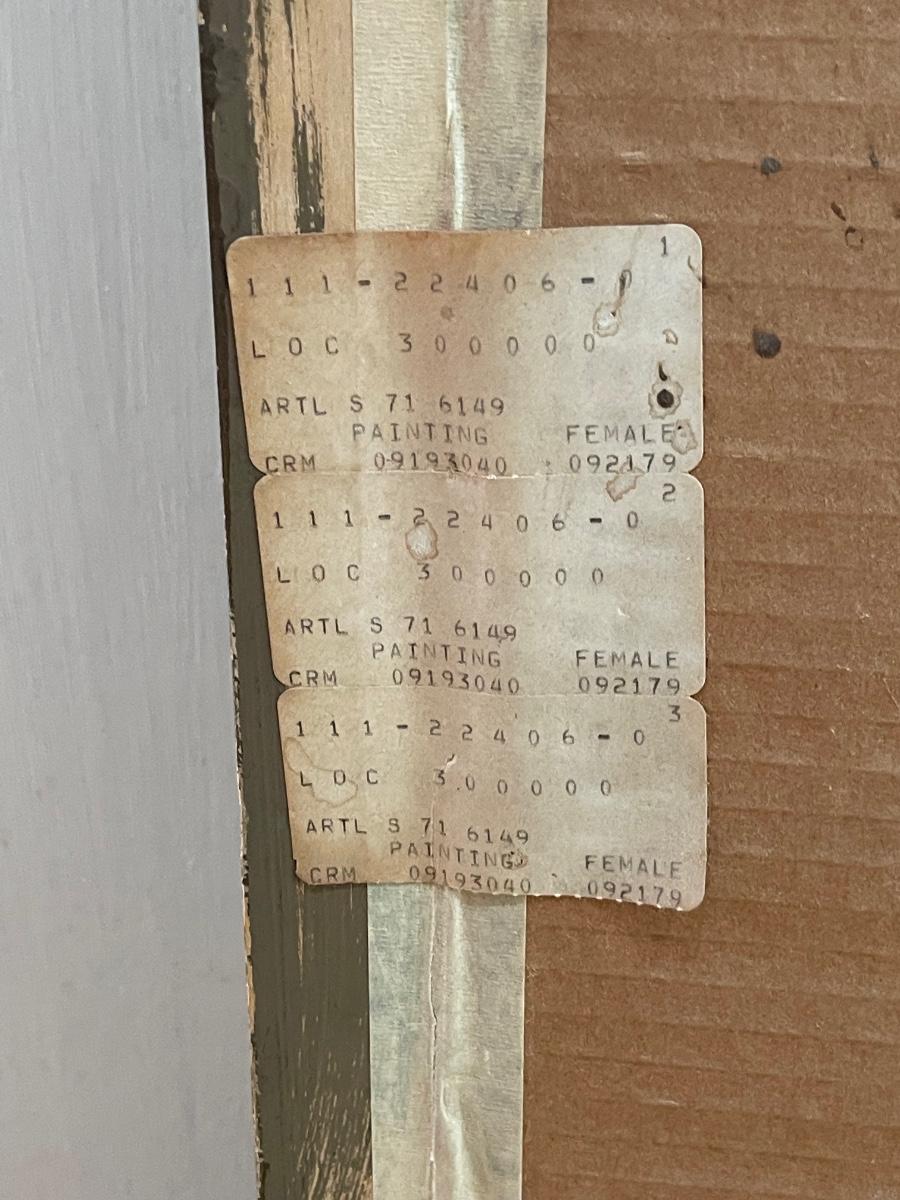 1
111-22406-0
LOC 300000
ARTL S 71 6149
PAINTING FEMALE
CRM 09193040 092179
2
111-22406-0
LOC 300000
ARTL S 71 6149
PAINTING FEMALE
CRM 09193040 092179
3
111-22406-0
LOC 300000
ARTL S 71 6149
PAINTING FEMALE
CRM 09193040 092179